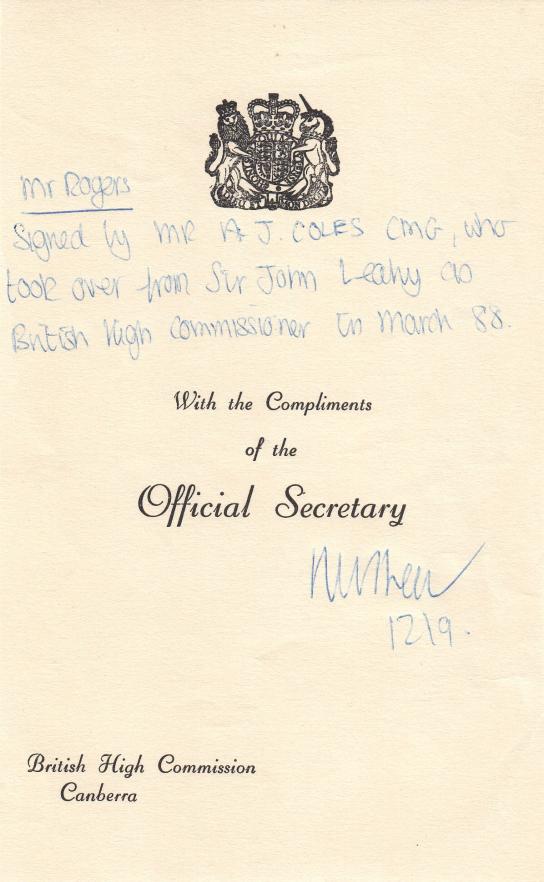 Mr Rogers
Signed by MR A J. COLES CMG, who
took over from Sir John Leahy as
British High Commissioner in March 88.
With the Compliments
of the
Official Secretary
12/9.
British High Commission
Canberra